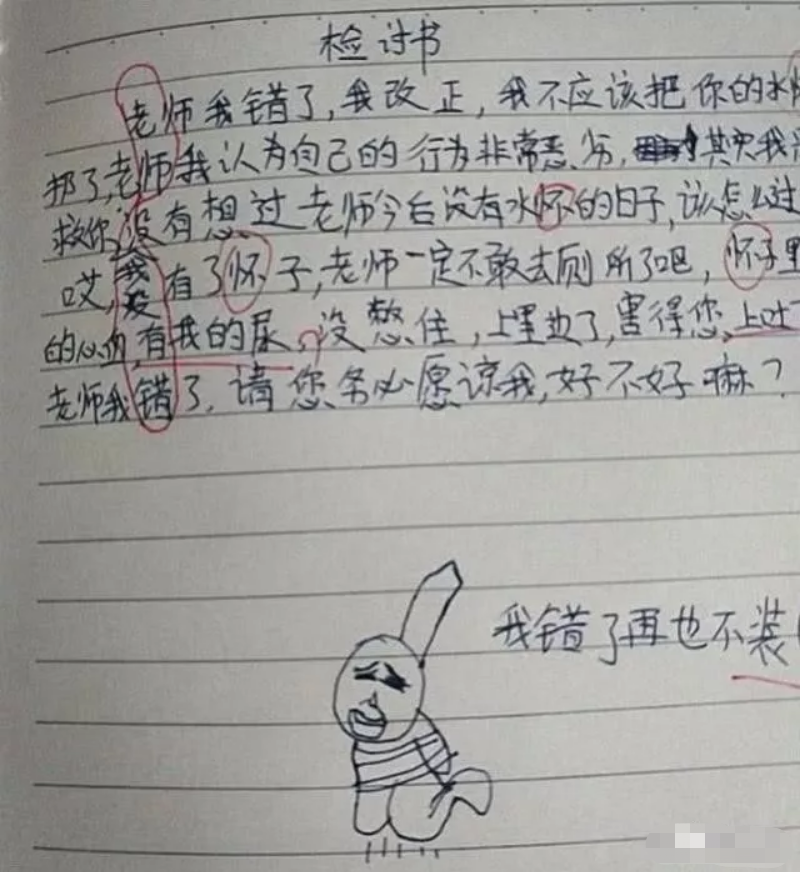 检讨书
老师我错了,我改正,我不应该把你的水
挪了,老师我认为自己的行为非常恶劣,其实我
救你,没有想过老师今后没有水怀的日子,该怎么过
哎,我没有了怀子,老师一定不敢去厕所了吧,怀子里
的心血,有我的尿,没憋住,上里边了,害得您,上吐
老师我错了,请您务必愿谅我,好不好嘛?
我错了再也不装